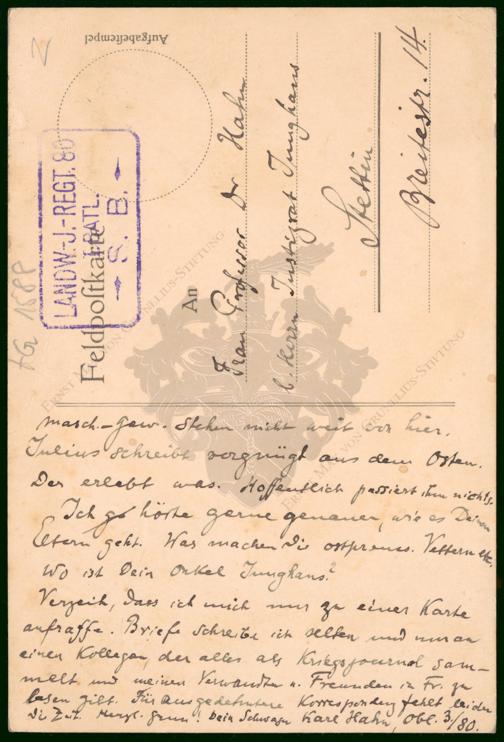 Aufgabestempel
LANDW.-J.-REGT. 80
I. BATL.
S. B.
Feldpostkarte
An
Frau Professor Dr Hahn
b. Herrn Justizrat Junghans
Stettin
Breitestr. 14.
masch.-Gew. stehn nicht weit von hier.
Julius schreibt vergnügt aus dem Osten.
Der erlebt was. Hoffentlich passiert ihm nichts.
Ich hörte gerne genauer, wie es Deinen
Eltern geht. Was machen die ostpreuss. Vettern etc.
Wo ist Dein Onkel Junghans?
Verzeih, dass ich mich nur zu einer Karte
aufraffe. Briefe schreibe ich selten und nur an
einen Kollegen, der alles als Kriegsjournal sam-
melt und meinen Verwandten u. Freunden in Fr. zu
lesen gibt. Für ausgedehntere Korrespondenz fehlt leider
die Zeit. Herzl. Dein Schwager Karl Hahn, Obl. 3/80.
ERNST MAX VON GRUNELIUS-STIFTUNG
ERNST MAX VON GRUNELIUS-STIFTUNG